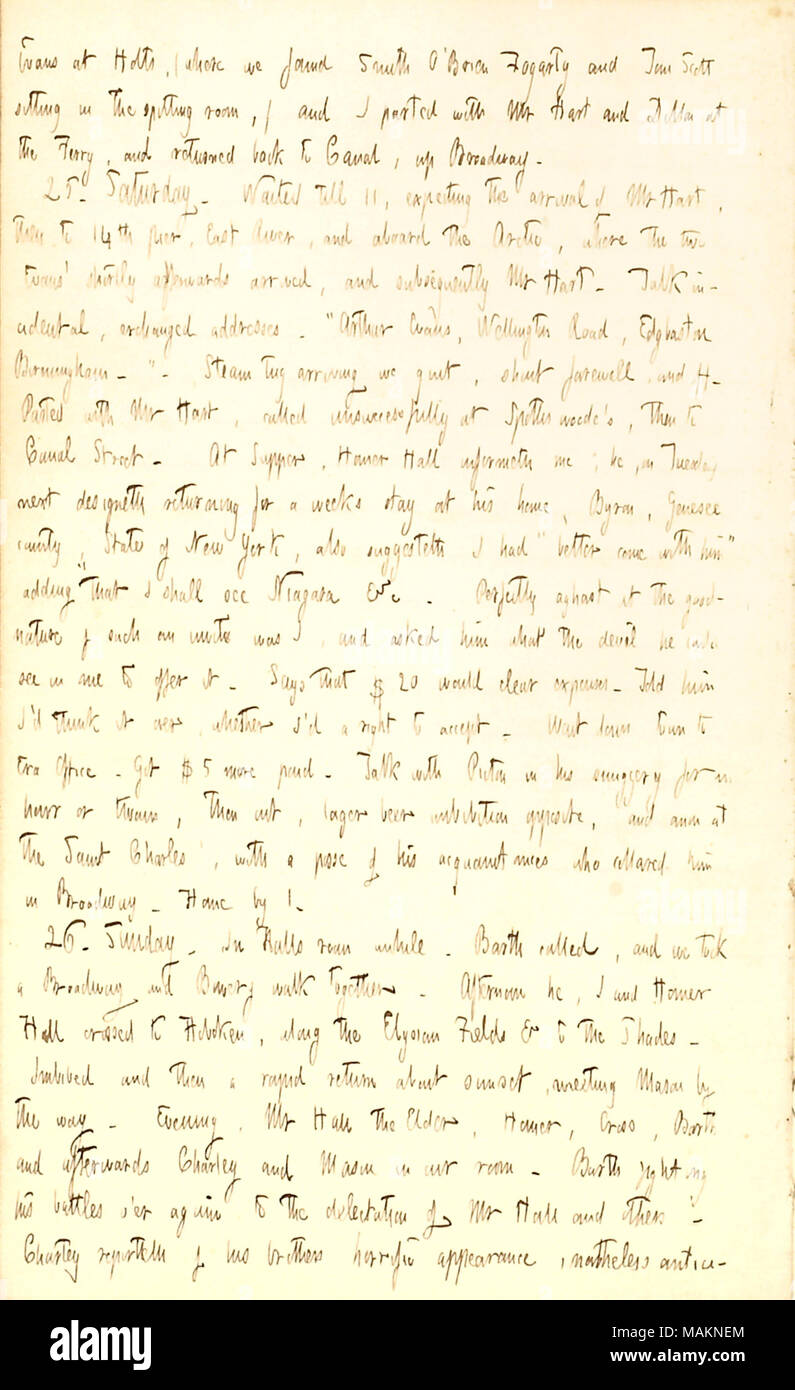 Evans at Holts, (where we found Smith O'Brien Fogarty and Tom Scott
sitting in the spitting room,) and I parted with Mr Hart and Dillon at
the Ferry, and returned back to Canal, up Broadway.
25. Saturday. Waited till 11, expecting the arrival of Mr Hart,
then to 14th pier, East River, and aboard the Arctic, where the two
Evans' shortly afterwards arrived, and subsequently Mr Hart. Talk in-
cidental, exchanged addresses. "Arthur Evans, Wellington Road, Edgbaston
Birmingham. ". Steam tug arriving we quit, short farewell and
Parted with Mr Hart, called unsuccessfully at Spottiswoode's, then to
Canal Street. At Supper, Homer Hall informeth me he, on Tuesday
next designeth returning for a weeks stay at his home, Byron, Genesee
county, State of New York, also suggesteth I had "better come with him"
adding "that I shall see Niagara &c. Perfectly aghast at the good-
nature of such an invite was I, and asked him what the devil he could
see in me to offer it. Says that $20 would clear expenses. Told him
I'd think it over, whether I'd a right to accept. Went down town to
Era Office. Got $5 more paid. Talk with Picton in his snuggery for an
hour or twain, then out, lager beer imbibition opposite, and anon at
the Saint Charles', with a posse of his acquaintances who collared him
in Broadway. Home by 1.
26. Sunday. In Halls room awhile. Barth called, and we took
a Broadway and Bowery walk together. Afternoon he, I and Homer
Hall crossed to Hoboken, along the Elysian Fields & to the Shades.
Imbibed and then a rapid return about sunset, meeting Mason by
the way. Evening, Mr Hall the Elder, Homer, Cross, Barth
and afterwards Charley and Mason in our room. Barth fighting
his battles o'er again to the delectation of Mr Hall and others.
Charley reporteth of his brothers horrific appearance, natheless antici-
alamy
Image ID: MAKNEM
www.alamy.com